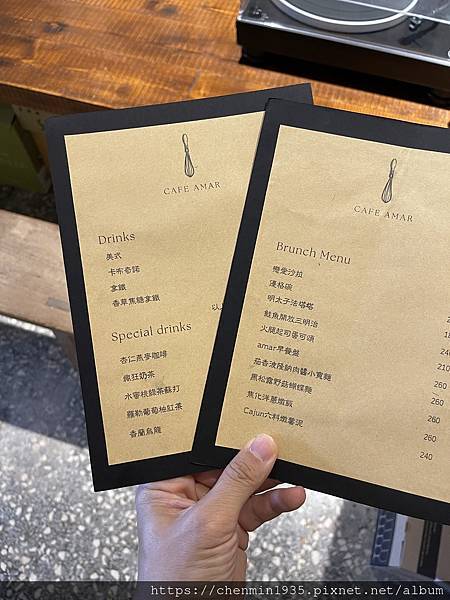 CAFE AMAR
Drinks
美式
卡布奇諾
拿鐵
香草焦糖拿鐵
以
Special drinks
杏仁燕麥咖啡
瘋狂奶茶
水蜜桃綠茶蘇打
羅勒葡萄柚紅茶
香蘭烏龍
CAFE AMAR
Brunch Menu
戀愛沙拉
優格碗
明太子法塔塔
鮭魚開放三明治
火腿起司蛋可頌
amar早餐盤
茄香波隆納肉醬小寬麵
黑松露野菇蝴蝶麵
焦化洋蔥燉飯
Cajun六料燉薯泥
240
210
260
260
260
260
240
https://chenmin1935.pixnet.net/album